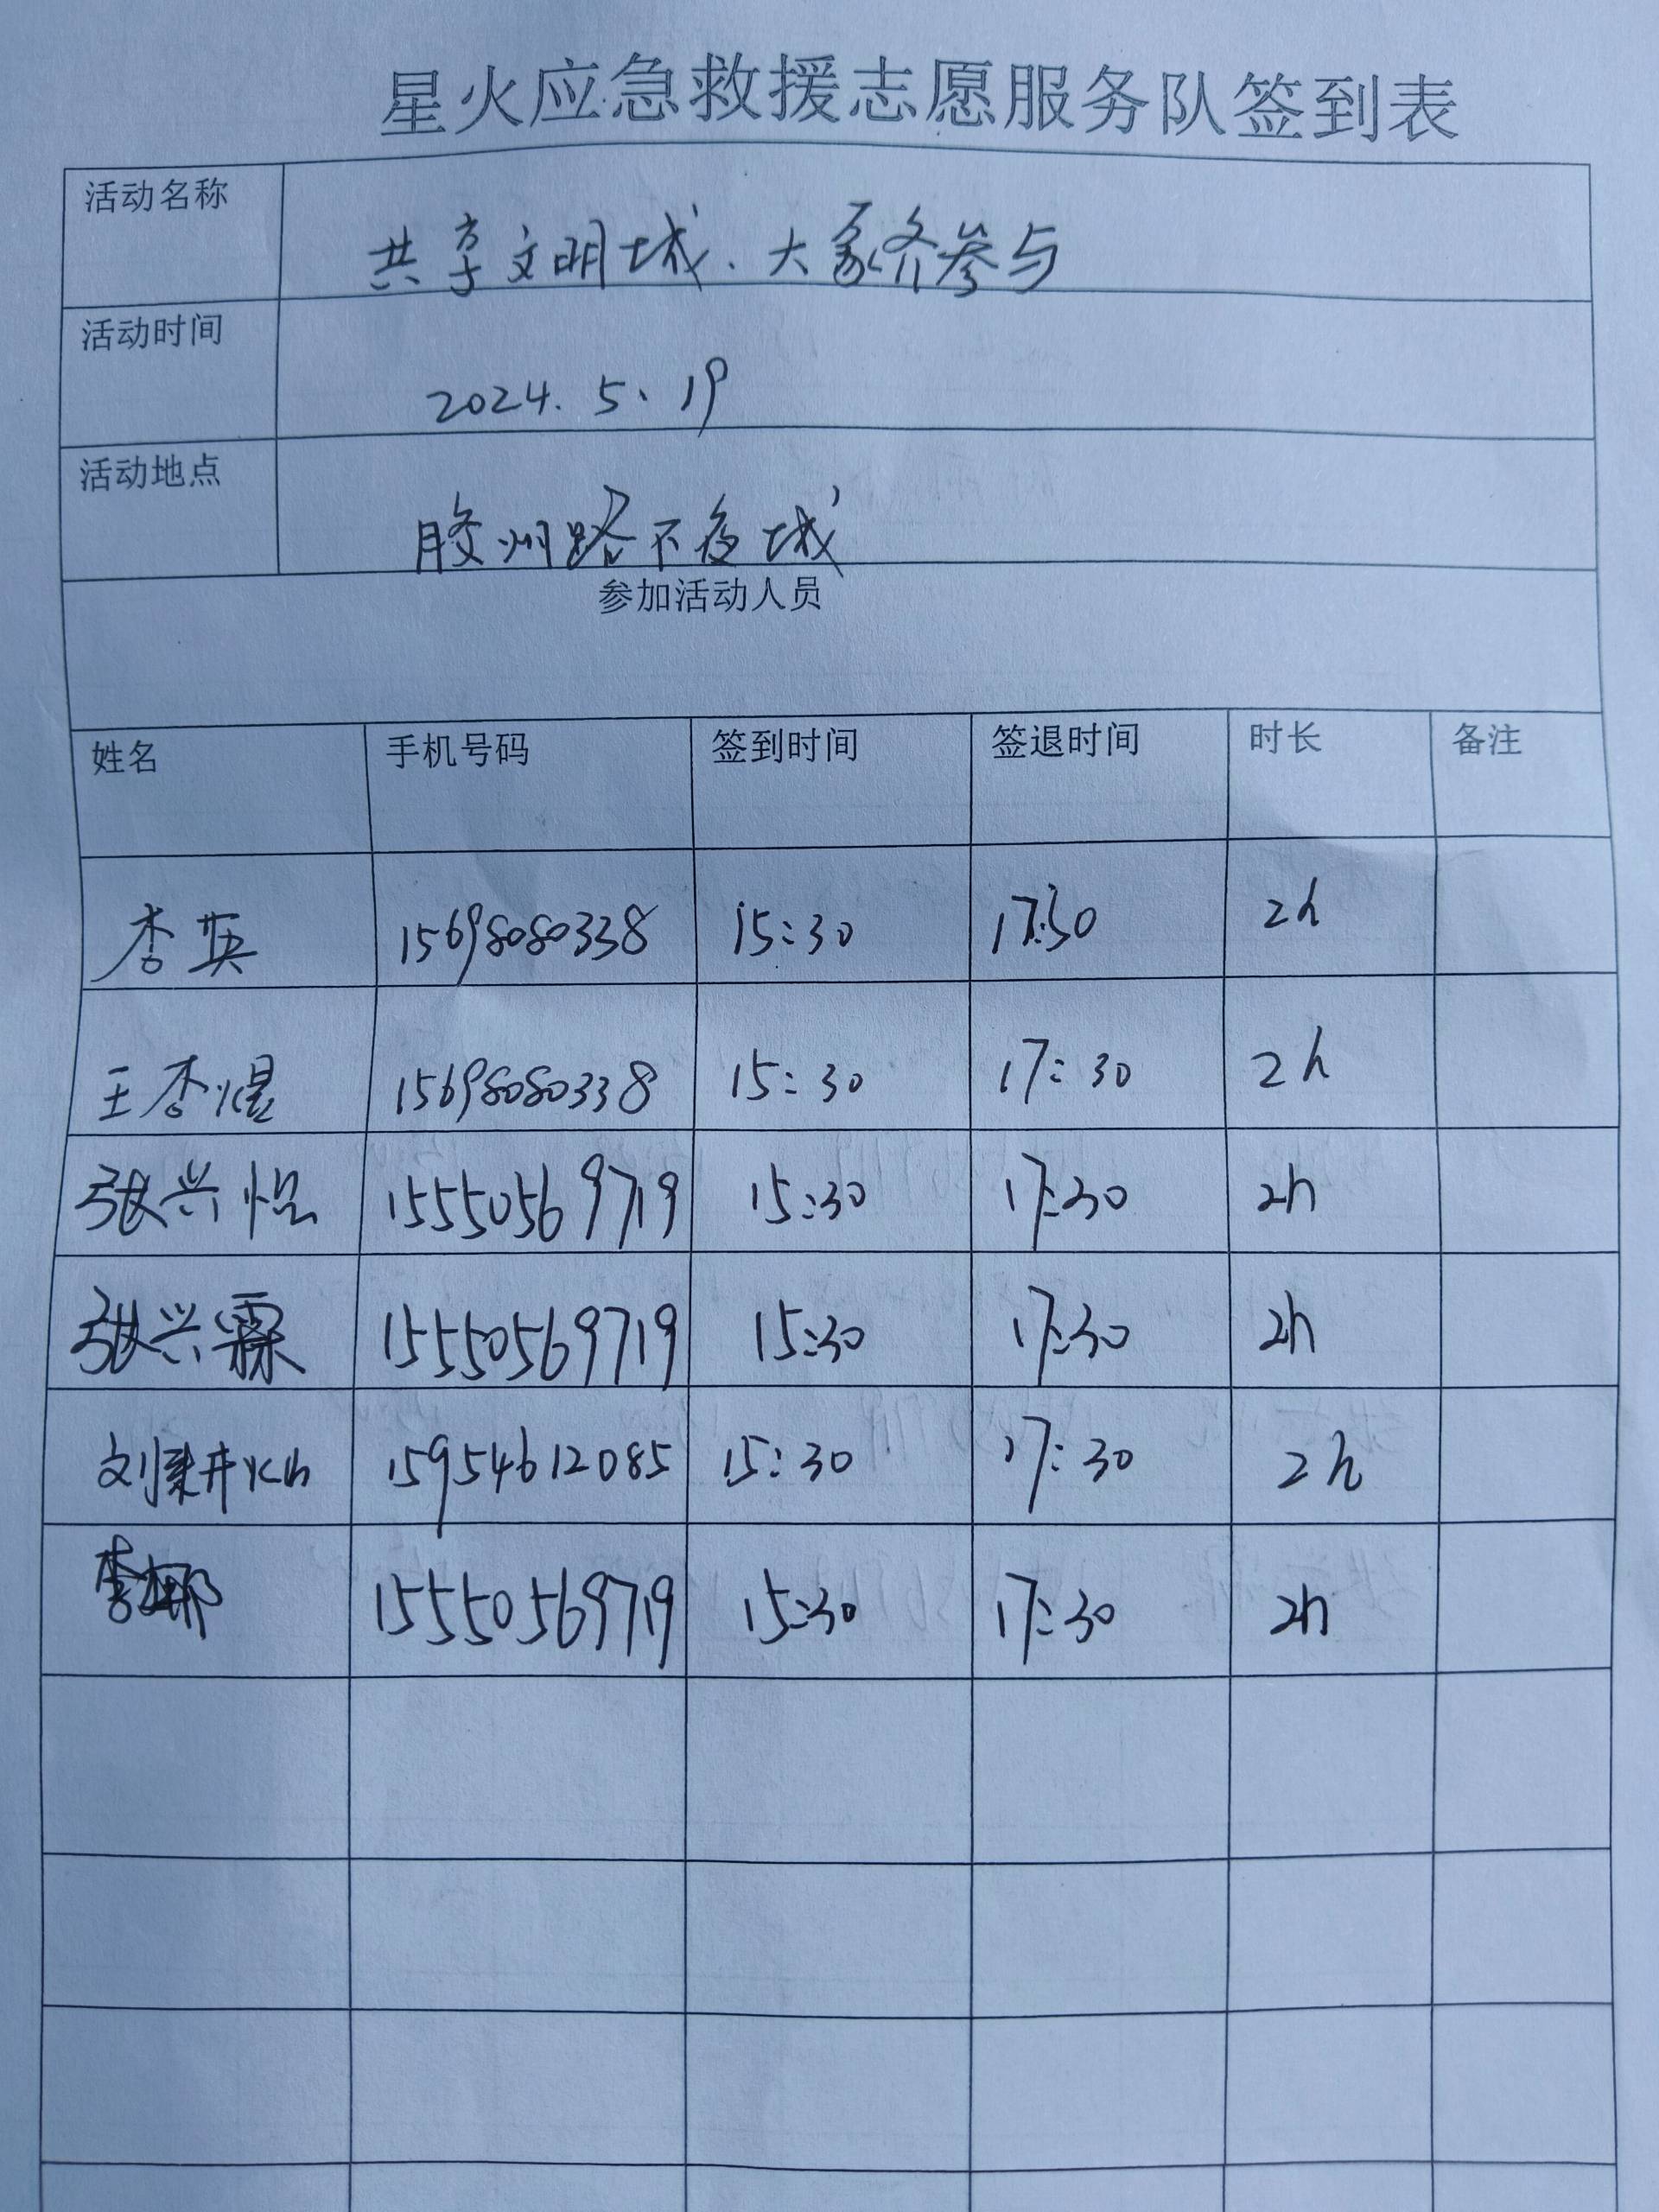 星火应急救援志愿服务队签到表
活动名称 共享文明城、大家齐参与
活动时间 2024.5.19
活动地点 胶州路不夜城
参加活动人员
姓名 手机号码 签到时间 签退时间 时长 备注
李英 15698080338 15:30 17:30 2h
王李煜 15698080338 15:30 17:30 2h
张兴怡 15550569719 15:30 17:30 2h
张兴霖 15550569719 15:30 17:30 2h
刘梁 15954612085 15:30 17:30 2h
李娜 15550569719 15:30 17:30 2h